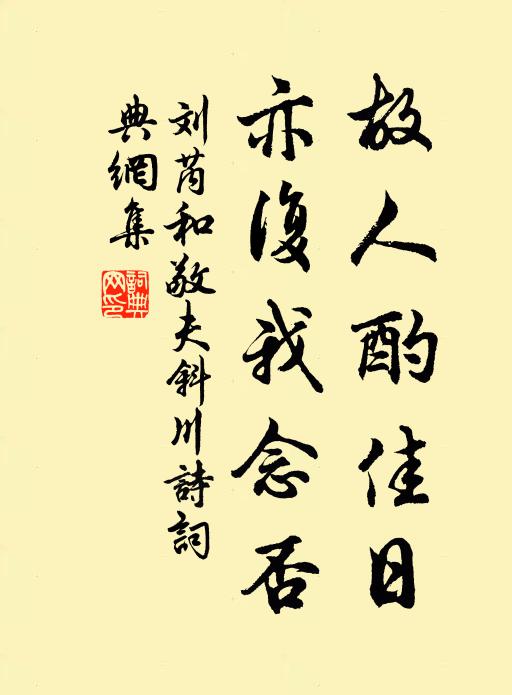 故人酌佳日
亦復我念否
刘芮和敬夫斜川詩詞
典網集
詞典網印